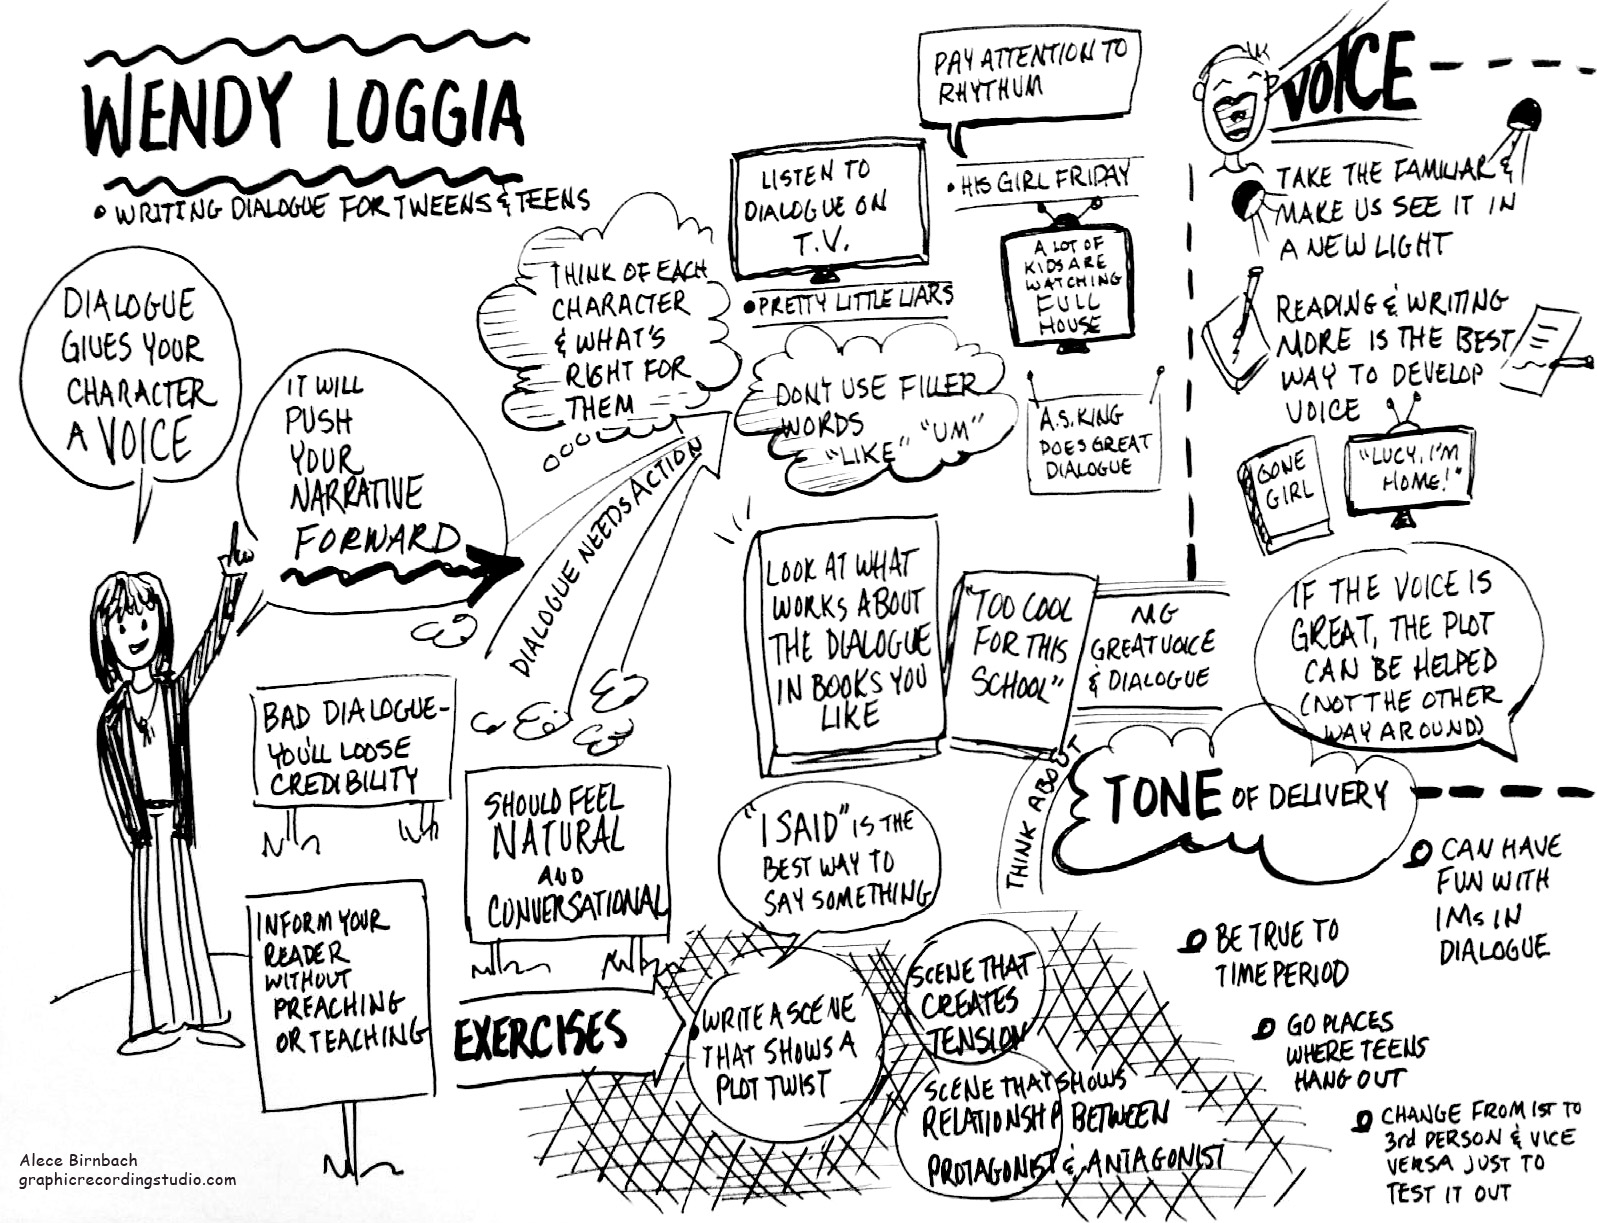 WENDY LOGGIA
• WRITING DIALOGUE FOR TWEENS & TEENS
DIALOGUE
GIVES YOUR
CHARACTER
A VOICE
IT WILL
PUSH
YOUR
NARRATIVE
FORWARD
THINK OF EACH
CHARACTER
& WHAT'S
RIGHT FOR
THEM
DIALOGUE NEEDS ACTION
LISTEN TO
DIALOGUE ON
T.V.
• PRETTY LITTLE LIARS
PAY ATTENTION TO
RHYTHUM
• HIS GIRL FRIDAY
A LOT OF
KIDS ARE
WATCHING
FULL
HOUSE
DON'T USE FILLER
WORDS
"LIKE" "UM"
A.S. KING
DOES GREAT
DIALOGUE
LOOK AT WHAT
WORKS ABOUT
THE DIALOGUE
IN BOOKS YOU
LIKE
"TOO COOL
FOR THIS
SCHOOL"
MG
GREAT VOICE
& DIALOGUE
VOICE
TAKE THE FAMILIAR &
MAKE US SEE IT IN
A NEW LIGHT
READING & WRITING
MORE IS THE BEST
WAY TO DEVELOP
VOICE
GONE
GIRL
"LUCY, I'M
HOME!"
IF THE VOICE IS
GREAT, THE PLOT
CAN BE HELPED
(NOT THE OTHER
WAY AROUND)
BAD DIALOGUE-
YOU'LL LOOSE
CREDIBILITY
SHOULD FEEL
NATURAL
AND
CONVERSATIONAL
INFORM YOUR
READER
WITHOUT
PREACHING
OR TEACHING
"I SAID" IS THE
BEST WAY TO
SAY SOMETHING
THINK ABOUT
TONE OF DELIVERY
CAN HAVE
FUN WITH
IMs IN
DIALOGUE
BE TRUE TO
TIME PERIOD
GO PLACES
WHERE TEENS
HANG OUT
CHANGE FROM 1ST TO
3rd PERSON & VICE
VERSA JUST TO
TEST IT OUT
EXERCISES
• WRITE A SCENE
THAT SHOWS A
PLOT TWIST
SCENE THAT
CREATES
TENSION
SCENE THAT SHOWS
RELATIONSHIP BETWEEN
PROTAGONIST & ANTAGONIST
Alece Birnbach
graphicrecordingstudio.com